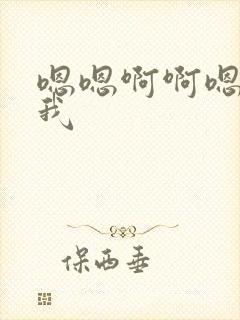 嗯嗯啊啊嗯
我
保西垂